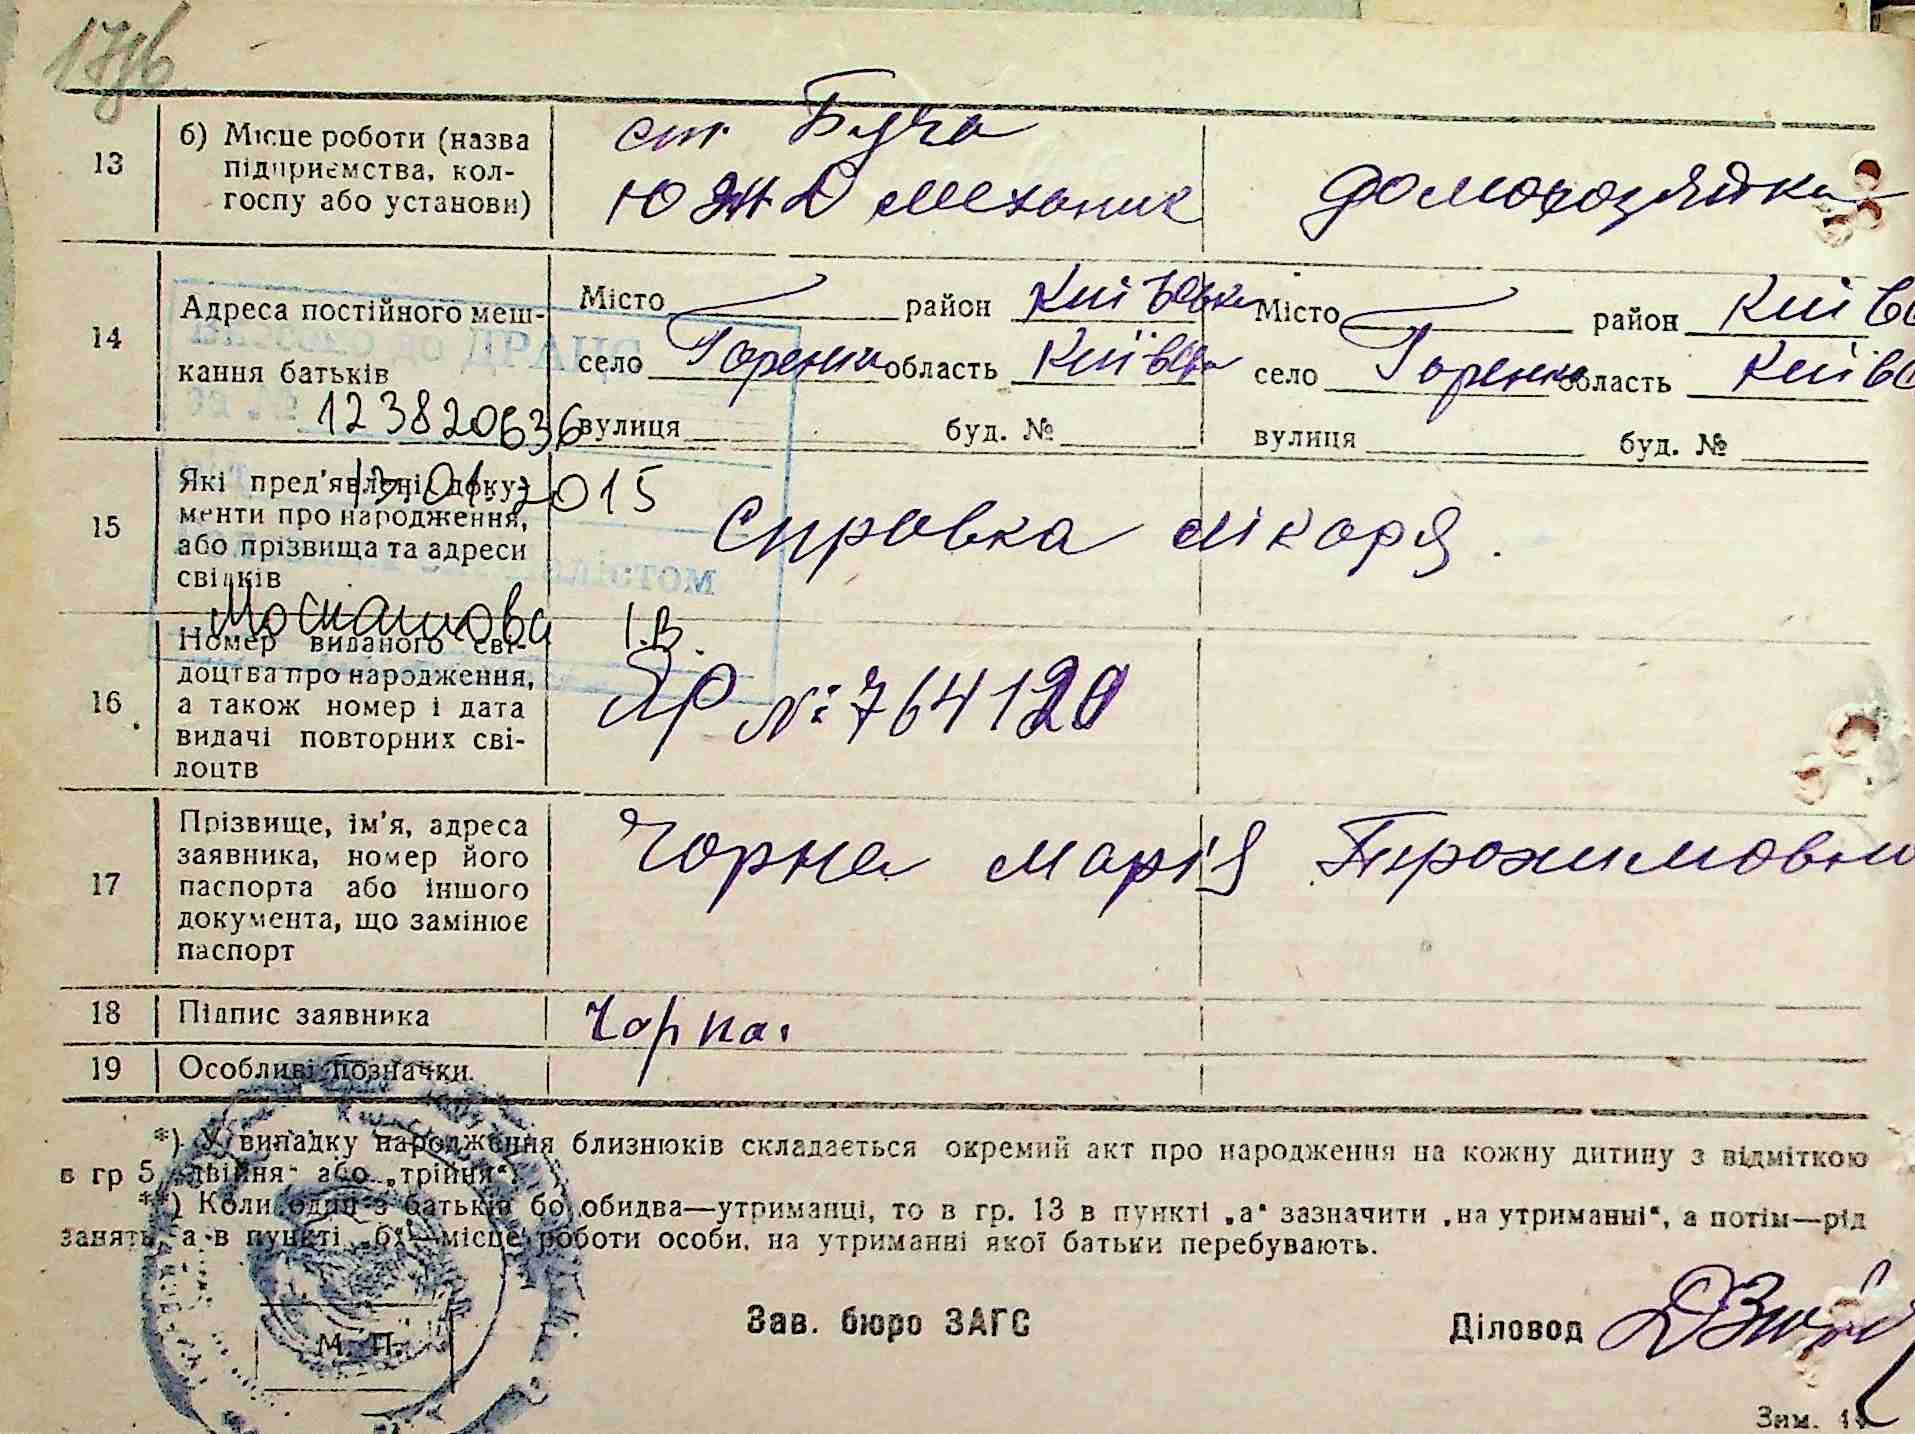 13
б) Місце роботи (назва
підприємства, кол-
госпу або установи)
ст. Буча
Ю З Ж Д механик
домохозяйка
14
Адреса постійного меш-
кання батьків
Місто район Київськ
село Горенки область Київськ
вулиця буд. №
Місто район Київс
село Горенки область Київс
вулиця буд. №
123820636
15
Які пред'явлені доку-
менти про народження,
або прізвища та адреси
свідків
13.01.2015
Справка лікаря.
І.В.
16
Номер виданого сві-
доцтва про народження,
а також номер і дата
видачі повторних сві-
доцтв
ЯР № 764120
17
Прізвище, ім'я, адреса
заявника, номер його
паспорта або іншого
документа, що замінює
паспорт
Чорна Марія
18
Підпис заявника
Чорна
19
Особливі позначки
*) У випадку народження близнюків складається окремий акт про народження на кожну дитину з відміткою
в гр 5 „двійня" або „трійня".
**) Коли один з батьків бо обидва—утриманці, то в гр. 13 в пункті „а" зазначити „на утриманні", а потім—рід
занять, а в пункті „б"—місце роботи особи, на утриманні якої батьки перебувають.
М. П.
Зав. бюро ЗАГС
Діловод
Зим.